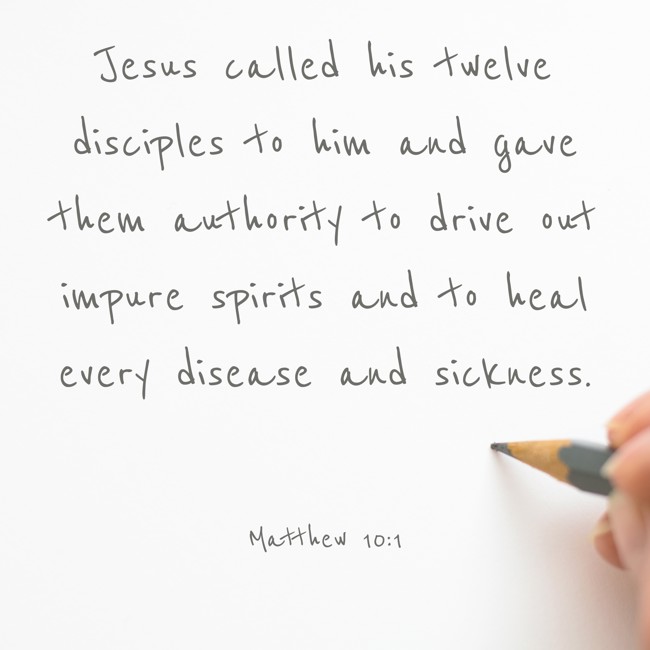 Jesus called his twelve
disciples to him and gave
them authority to drive out
impure spirits and to heal
every disease and sickness.
Matthew 10:1